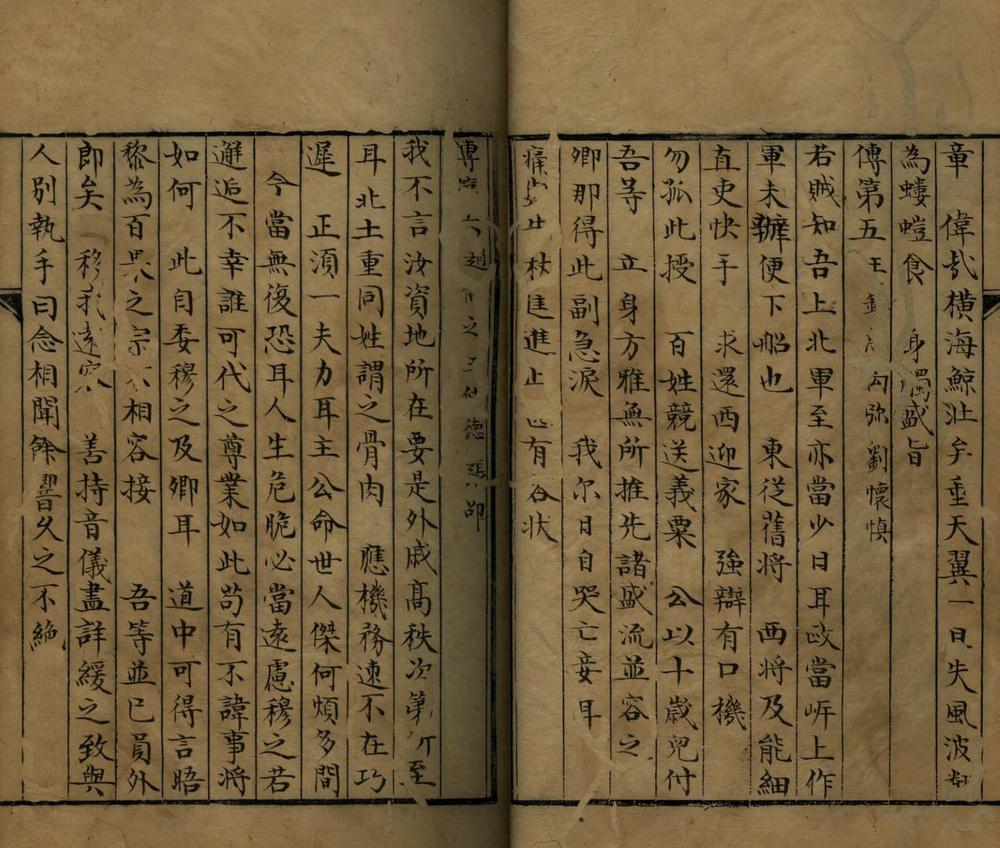 章　偉哉橫海鯨壯矣垂天翼一旦失風波翻
為螻螘食　身濁盛旨
傳第五王　　　劉懷慎
若賊知吾上北軍至亦當少日耳政當岍上作
軍未辦便下船也　東從舊將　西將及能細
直吏快手　求還西迎家　強辯有口機
勿孤此授　百姓競送義粟　公以十歲兒付
吾等　立身方雅無所推先諸盛流並容之
卿那得此副急淚　我尔日自哭亡妾耳
杖進進止　有谷状
傳　之　德
我不言汝資地所在要是外戚髙秩次第　至
耳北土重同姓謂之骨肉　應機務速不在巧
遲　正湏一夫力耳主公命世人傑何煩多間
今當無復恐耳人生危脆必當遠慮穆之若
邂逅不幸誰可代之尊業如此苟有不諱事將
如何　此自委穆之及卿耳　道中可得言晤
黎為百　之宗　相容接　吾等並已員外
郎矣　移我逺客　善持音儀盡詳緩之致與
人別執手曰念相聞餘響久之不絶